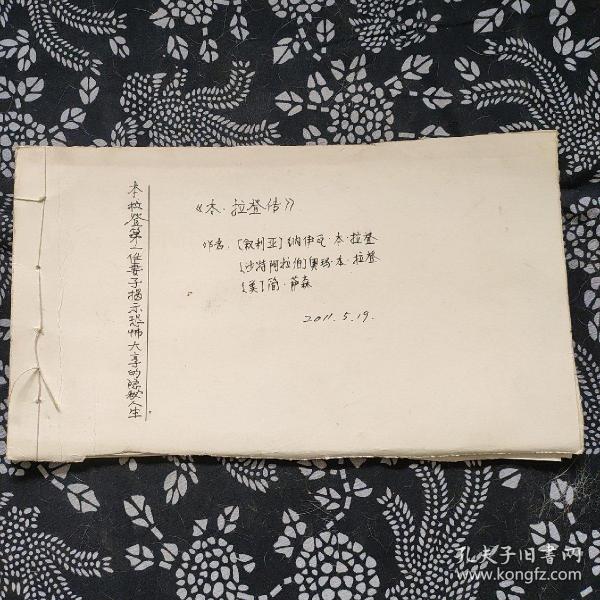 本·拉登第一任妻子揭示恐怖大亨的隐秘人生
《本·拉登传》
作者:〔叙利亚〕纳伊瓦·本·拉登
〔沙特阿拉伯〕奥玛·本·拉登
〔美〕简·萨森
2011.5.19.
孔夫子旧书网
www.kongfz.com